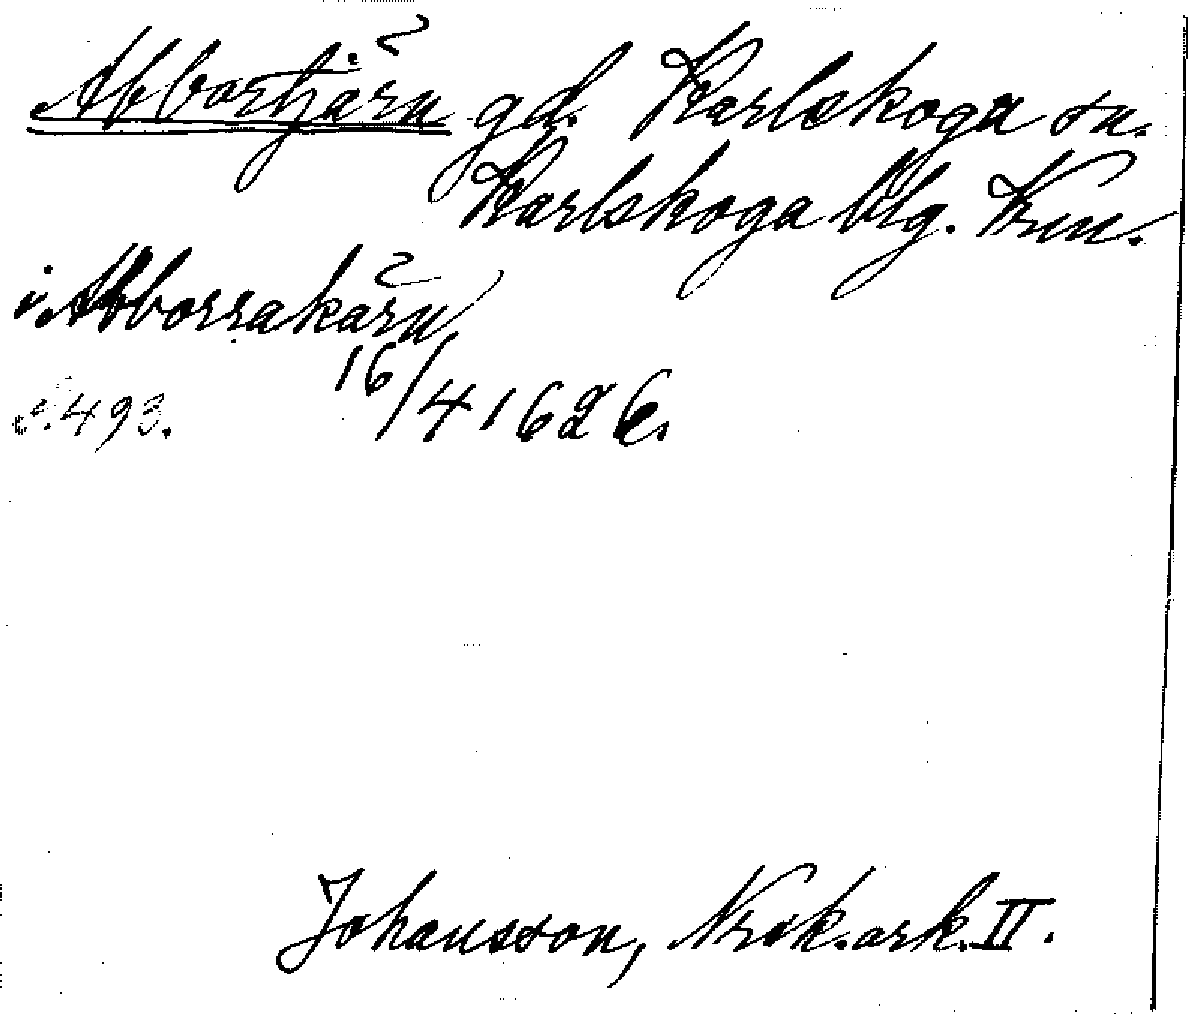 Abbortjärn gd. Karlskoga sn.
Karlskoga blg. Krm.
i Abborrakärn
16/4 1626.
s. 493.
Johansson, Nrsk. ark. II.